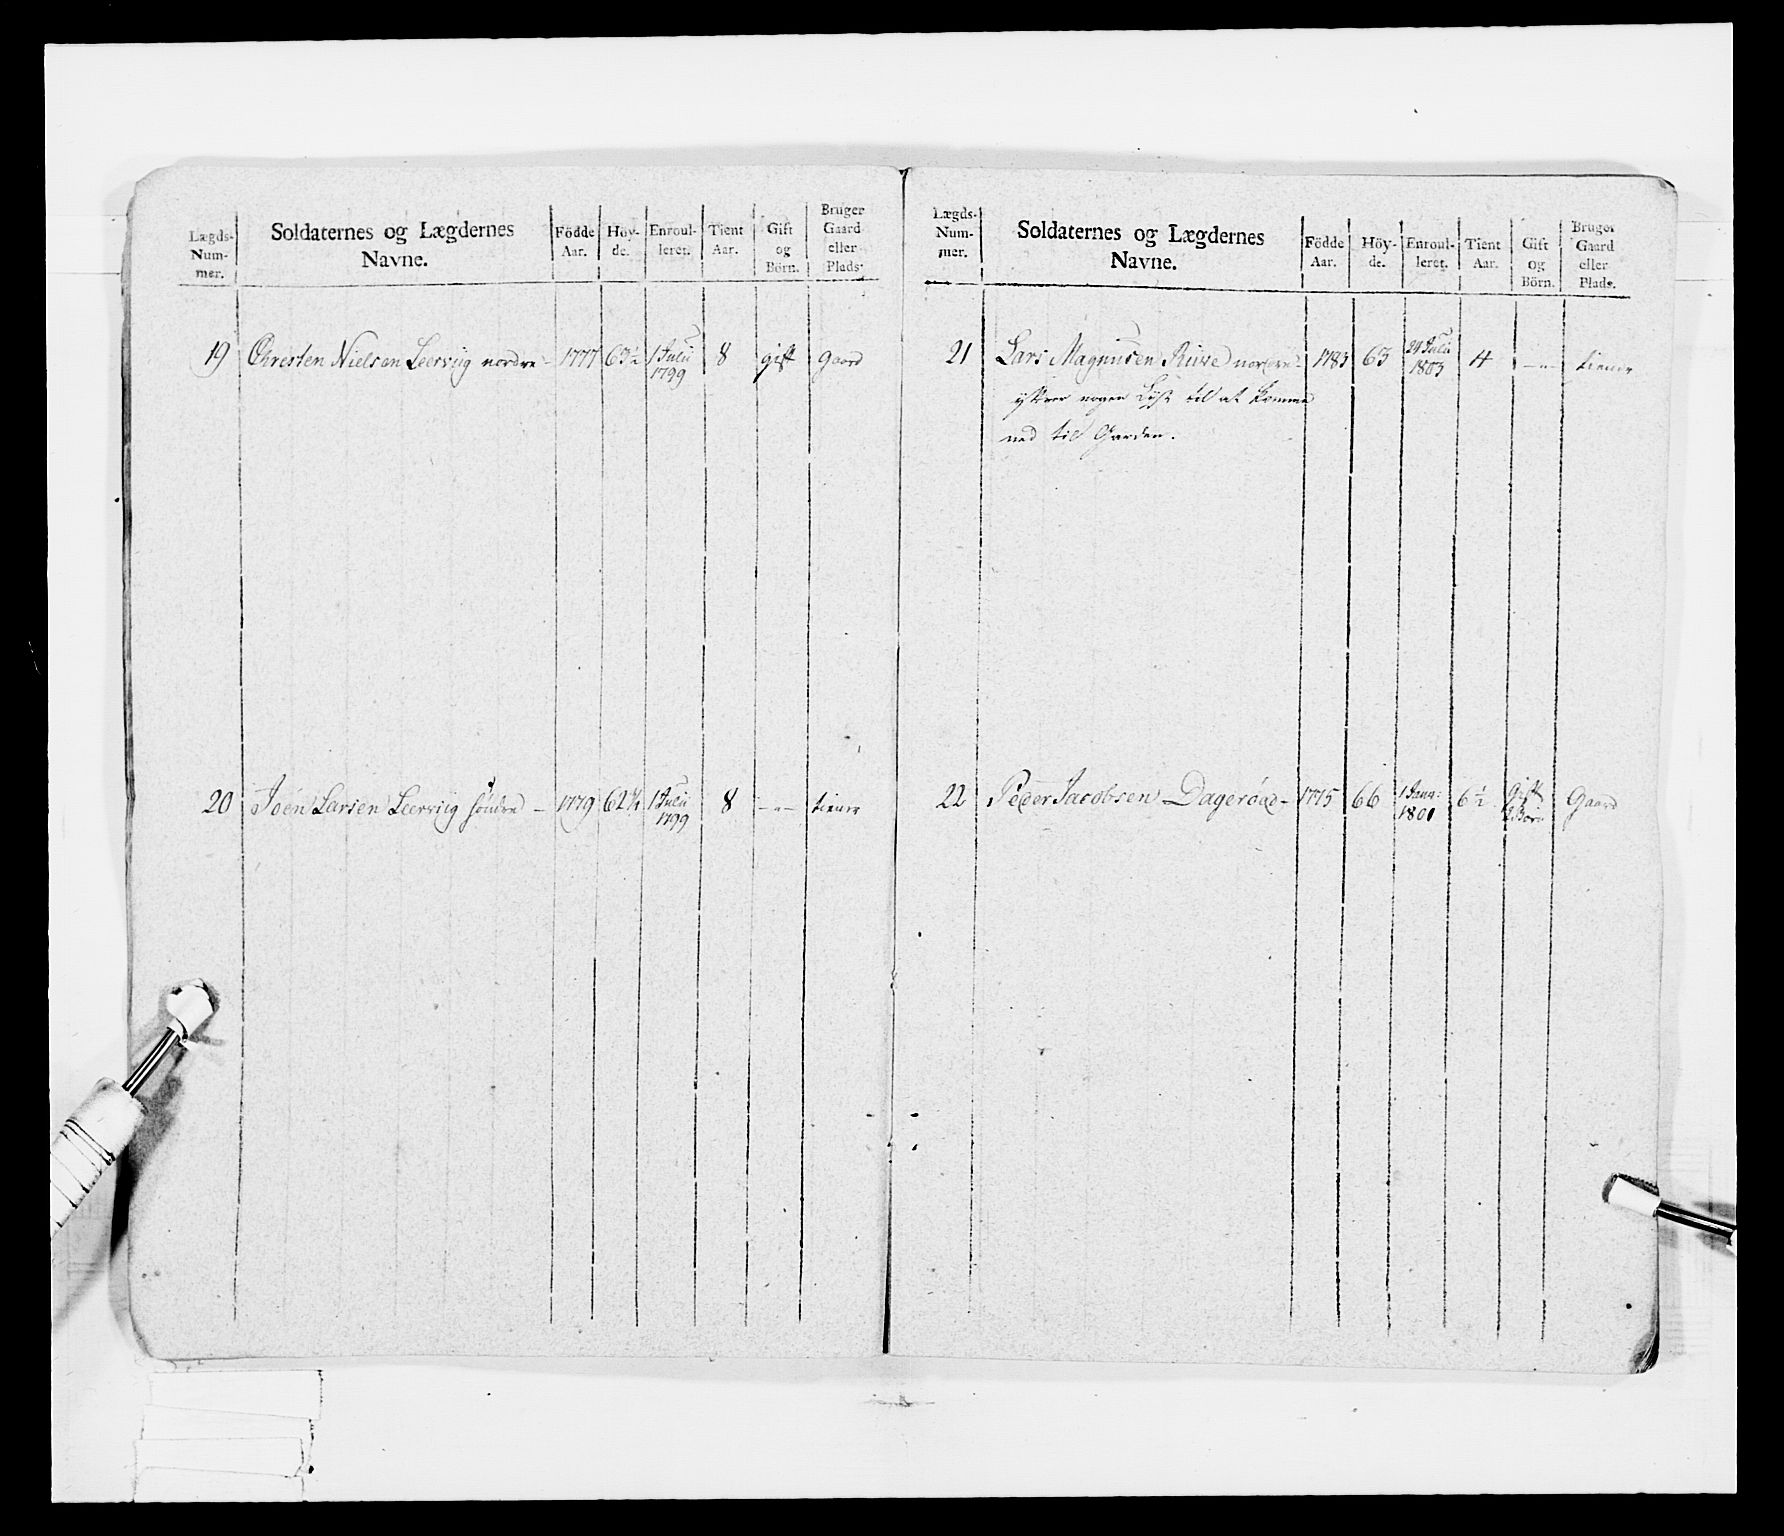 Lægds-Num-mer. | Soldaternes og Lægdernes Navne. | Födde Aar. | Höy-de. | Enroul-leret. | Tient Aar. | Gift og Börn. | Bruger Gaard eller Plads.
19 Chresten Nielsen Leerviig nordre - 1777 63½ 1 Julii 1799 8 gift Gaard
20 Joen Larsen Leerviig söndre - 1779 62¼ 1 Julii 1799 8 -"- tiener
Lægds-Num-mer. | Soldaternes og Lægdernes Navne. | Födde Aar. | Höy-de. | Enroul-leret. | Tient Aar. | Gift og Börn. | Bruger Gaard eller Plads.
21 Lars Magnusen nordre - 1783 63 24 Julii 1803 4 -"- tiener
nogen Lyst til at komme
ned til Garden.
22 Peder Jacobsen Dageröed - 1775 66 1 Janu: 1801 6½ Gift 2 Börn Gaard